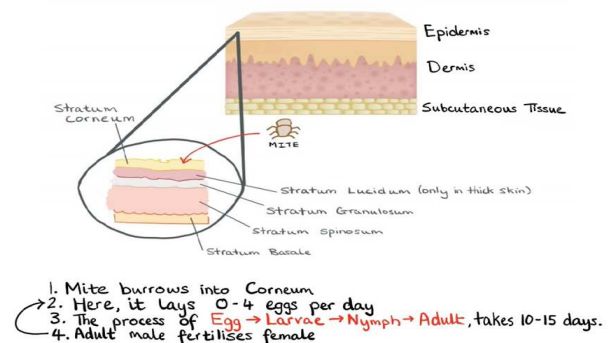 Epidermis
Dermis
Subcutaneous Tissue
Stratum
Corneum
MITE
Stratum Lucidum (only in thick skin)
Stratum Granulosum
Stratum Spinosum
Stratum Basale
1. Mite burrows into Corneum
2. Here, it lays 0-4 eggs per day
3. The process of Egg → Larvae → Nymph → Adult, takes 10-15 days.
4. Adult male fertilises female